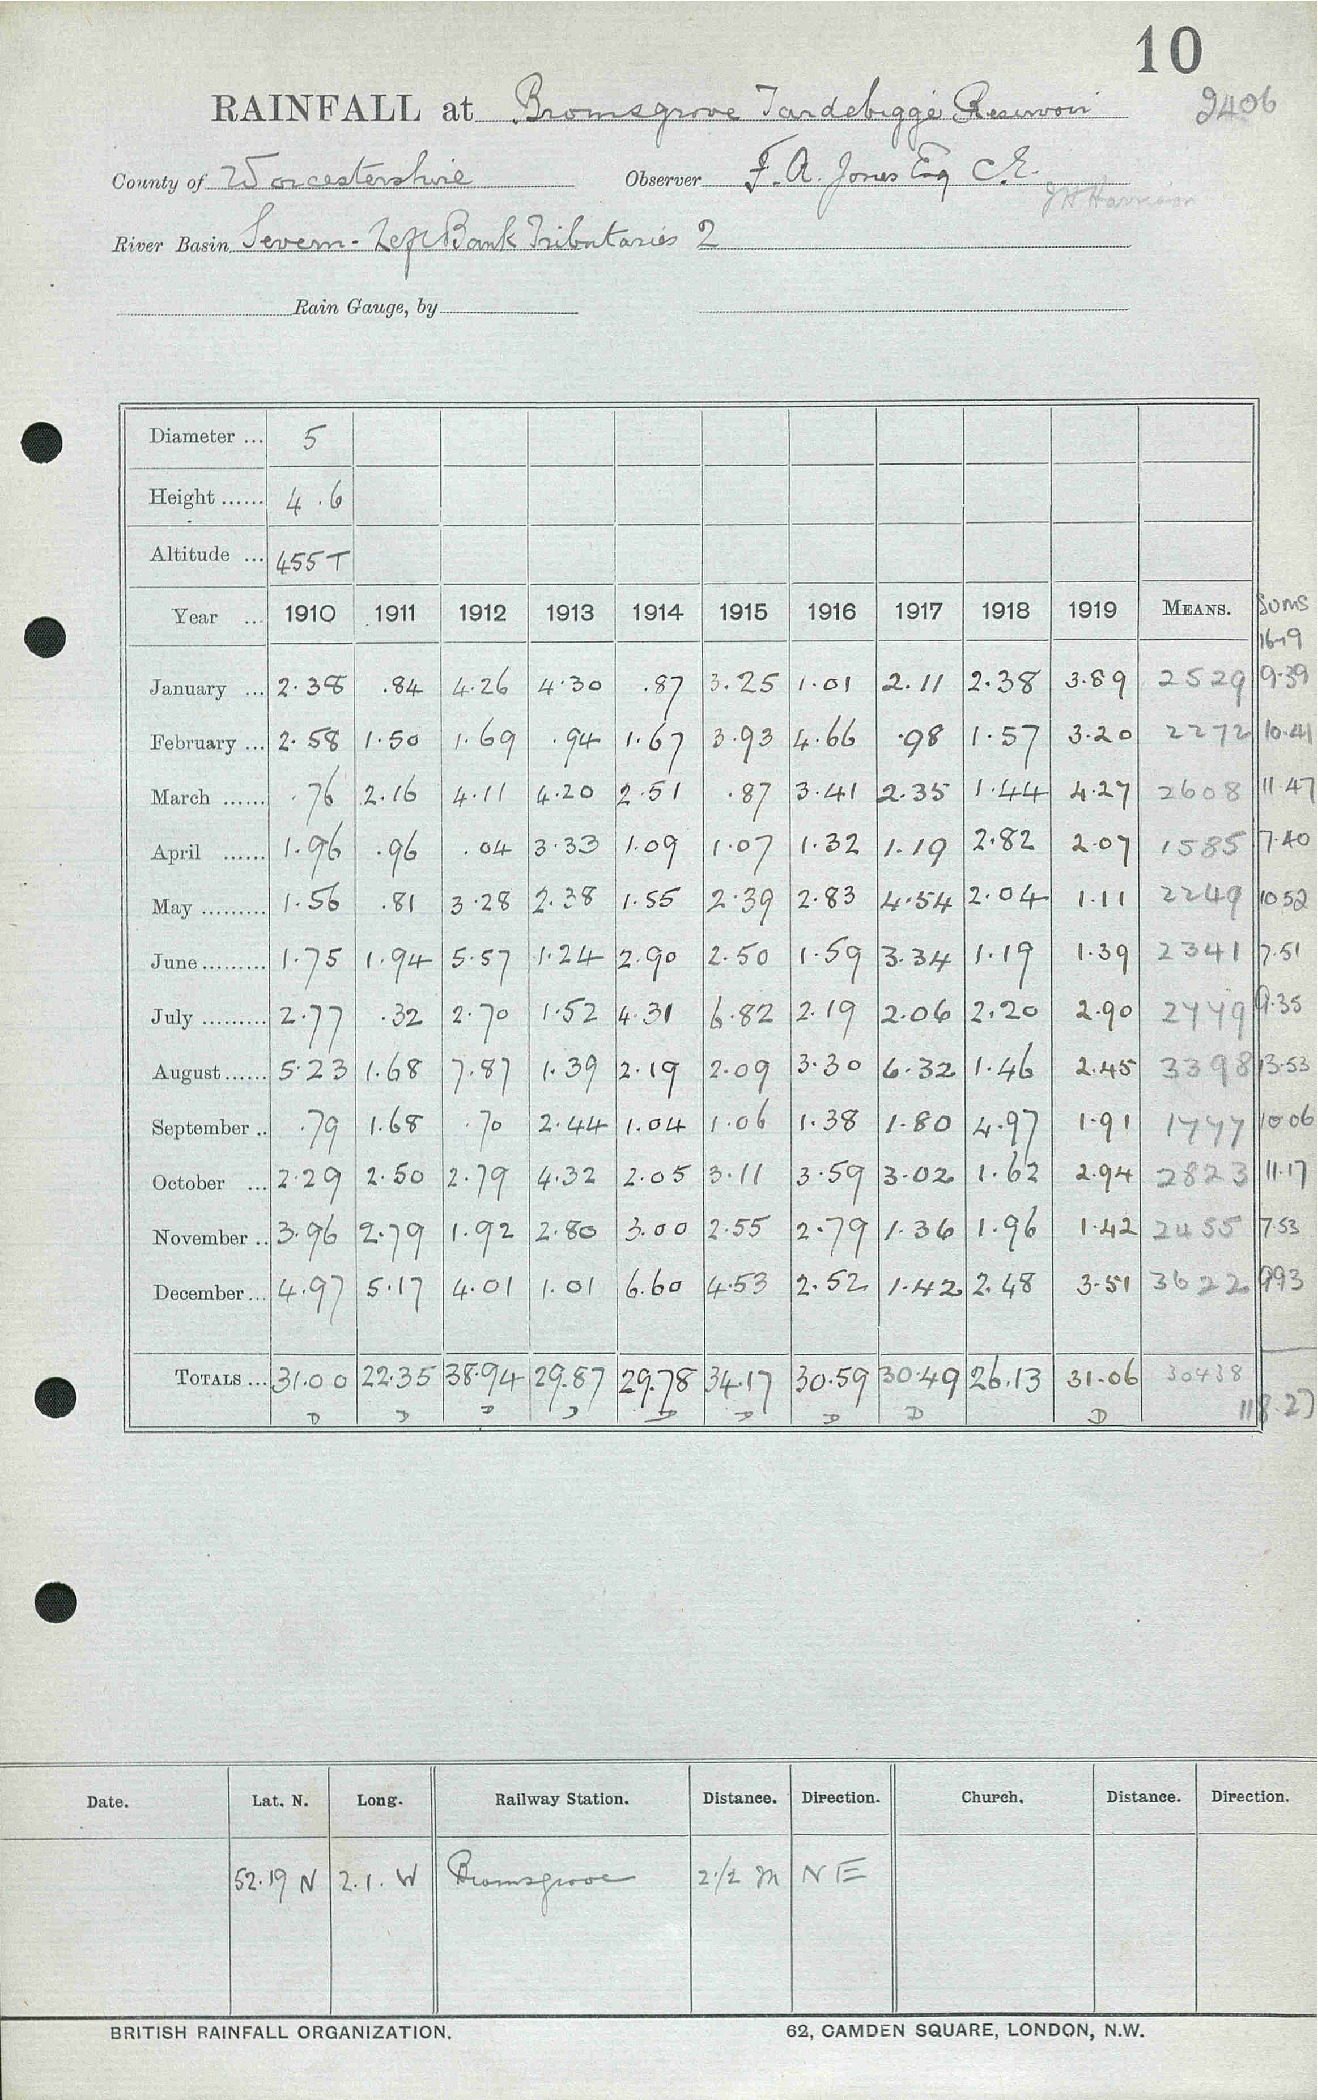 10
RAINFALL at Bromsgrove Tardebigge Reservoir 2406
County of Worcestershire Observer F. A. Jones Esq C.E.
J H Harrison
River Basin Severn - Left Bank Tributaries 2
Rain Gauge, by
Diameter ... 5
Height ...... 4.6
Altitude ... 455 T
Year ... 1910 1911 1912 1913 1914 1915 1916 1917 1918 1919 MEANS. Sums
16-19
January ... 2.38 .84 4.26 4.30 .87 3.25 1.01 2.11 2.38 3.89 2529 9.39
February ... 2.58 1.50 1.69 .94 1.67 3.93 4.66 .98 1.57 3.20 2272 10.41
March ...... .76 2.16 4.11 4.20 2.51 .87 3.41 2.35 1.44 4.27 2608 11.47
April ...... 1.96 .96 .04 3.33 1.09 1.07 1.32 1.19 2.82 2.07 1585 7.40
May ......... 1.56 .81 3.28 2.38 1.55 2.39 2.83 4.54 2.04 1.11 2249 10.52
June ......... 1.75 1.94 5.57 1.24 2.90 2.50 1.59 3.34 1.19 1.39 2341 7.51
July ......... 2.77 .32 2.70 1.52 4.31 6.82 2.19 2.06 2.20 2.90 2779 9.35
August ...... 5.23 1.68 7.87 1.39 2.19 2.09 3.30 6.32 1.46 2.45 3398 13.53
September .. .79 1.68 .70 2.44 1.04 1.06 1.38 1.80 4.97 1.91 1777 10.06
October ... 2.29 2.50 2.79 4.32 2.05 3.11 3.59 3.02 1.62 2.94 2823 11.17
November .. 3.96 2.79 1.92 2.80 3.00 2.55 2.79 1.36 1.96 1.42 2455 7.53
December ... 4.97 5.17 4.01 1.01 6.60 4.53 2.52 1.42 2.48 3.51 3622 9.93
TOTALS ... 31.00 22.35 38.94 29.87 29.78 34.17 30.59 30.49 26.13 31.06 30438
D D D D D D D D D 118.27
Date. Lat. N. Long. Railway Station. Distance. Direction. Church. Distance. Direction.
52.19 N 2.1. W Bromsgrove 2 1/2 m NE
BRITISH RAINFALL ORGANIZATION. 62, CAMDEN SQUARE, LONDON, N.W.